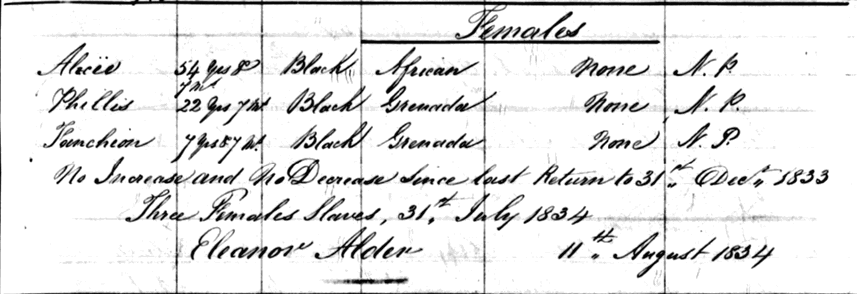 Females
54 Yrs & 7 Mt Black African None N. P.
Phillis 22 Yrs 7 Mt Black Grenada None N. P.
7 Yrs & 7 Mt Black Grenada None N. P.
No Increase and No Decrease Since last Return to 31st Decr 1833
Three Females Slaves, 31st July 1834
Eleanor Alder 11th August 1834